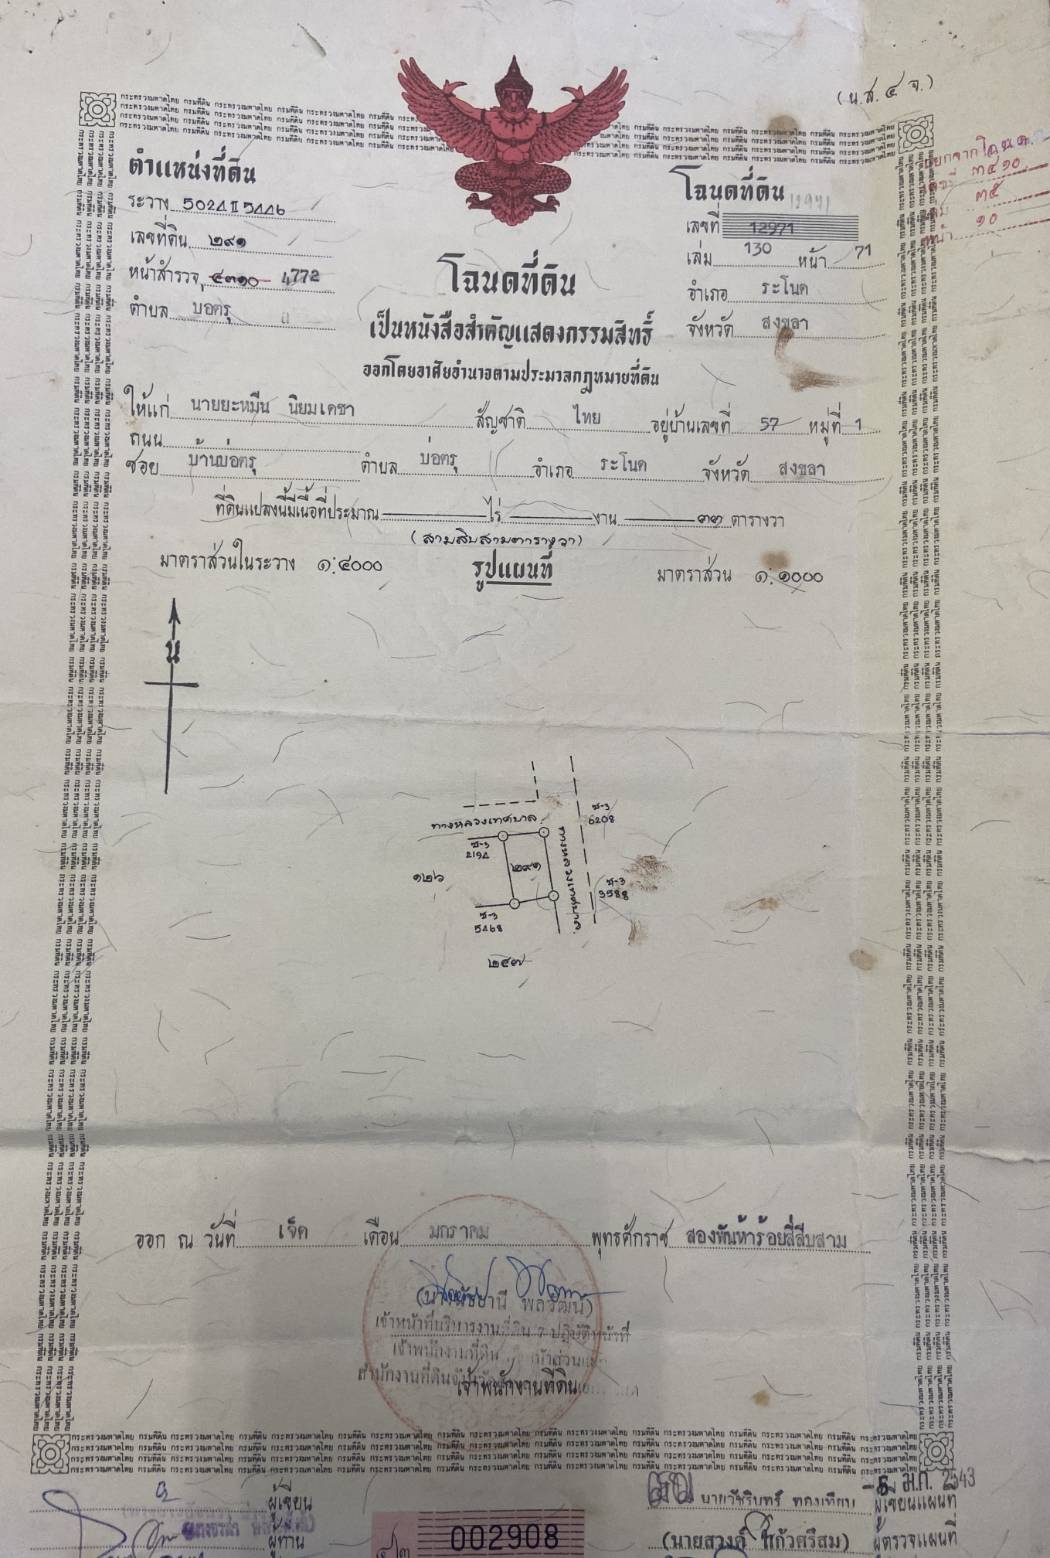 (น.ส. ๔ จ.)
ตำแหน่งที่ดิน
ระวาง 5024 II 5446
เลขที่ดิน ๒๙๑
หน้าสำรวจ ๔๓๑๐ 4772
ตำบล บ่อตรุ
โฉนดที่ดิน
เลขที่ 12971
เล่ม 130 หน้า 71
อำเภอ ระโนด
จังหวัด สงขลา
๓๔๑๐
๓๕
หน้า ๑๐
โฉนดที่ดิน
เป็นหนังสือสำคัญแสดงกรรมสิทธิ์
ออกโดยอาศัยอำนาจตามประมวลกฎหมายที่ดิน
ให้แก่ นายยะหมีน นิยมเดชา สัญชาติ ไทย อยู่บ้านเลขที่ 57 หมู่ที่ 1
ถนน
ซอย บ้านบ่อตรุ ตำบล บ่อตรุ อำเภอ ระโนด จังหวัด สงขลา
ที่ดินแปลงนี้มีเนื้อที่ประมาณ ไร่ งาน ๓๓ ตารางวา
(สามสิบสามตารางวา)
มาตราส่วนในระวาง ๑:๔๐๐๐ รูปแผนที่ มาตราส่วน ๑:๑๐๐๐
น
ทางหลวงเทศบาล
ซ-3
6208
ซ-3
2194
๒๙๑
ทางหลวงเทศบาล
๑๒๖
ซ-3
ซ-3
5468
๒๕๗
ออก ณ วันที่ เจ็ด เดือน มกราคม พุทธศักราช สองพันห้าร้อยสี่สิบสาม
เจ้าหน้าที่บริหารงานที่ดิน 7 ปฏิบัติหน้าที่
เจ้าพนักงานที่ดิน
สำนักงานที่ดิน
เจ้าพนักงานที่ดิน
ผู้เขียน
ผู้ทาน
002908
ม.ค. 2543
นายวัชรินทร์ ทองเทียบ ผู้เขียนแผนที่
(นายสวงค์ แก้วศรีสม) ผู้ตรวจแผนที่